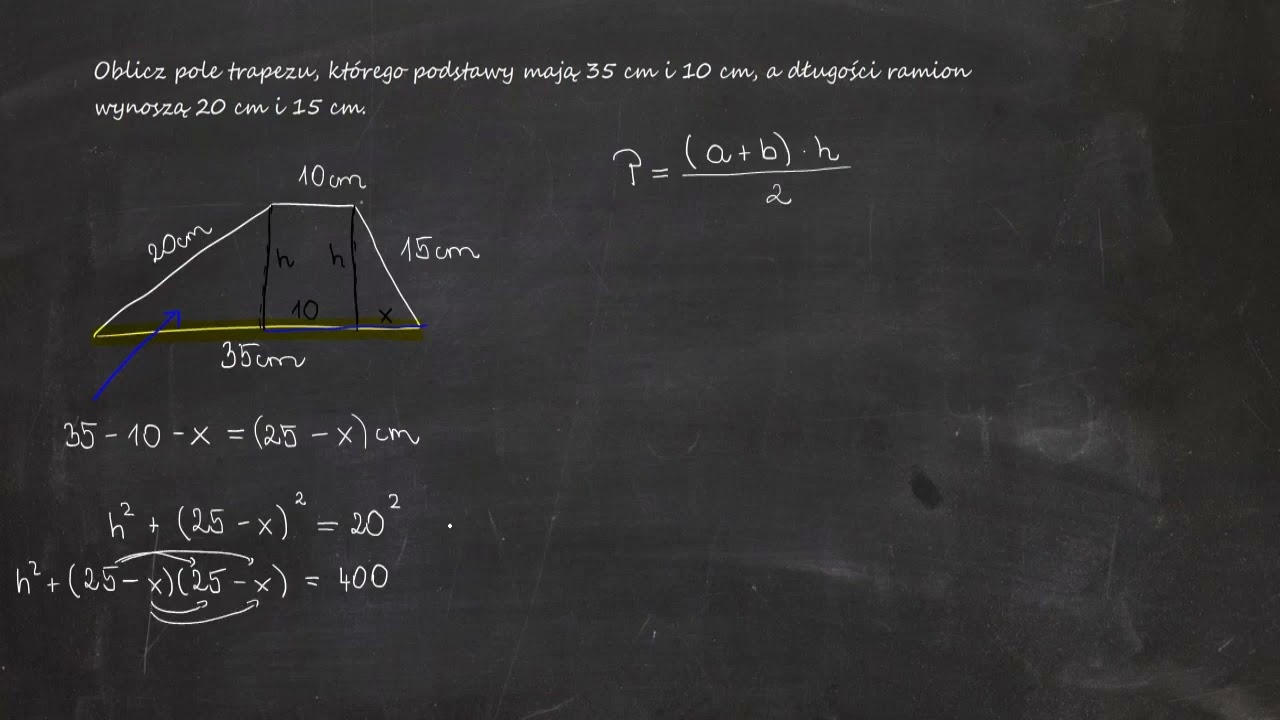 Oblicz pole trapezu, którego podstawy mają 35 cm i 10 cm, a długości ramion
wynoszą 20 cm i 15 cm.
P = (a+b)·h / 2
10cm
20cm
h
h
15cm
10
x
35cm
35 - 10 - x = (25 - x) cm
h² + (25 - x)² = 20²
h² + (25 - x)(25 - x) = 400